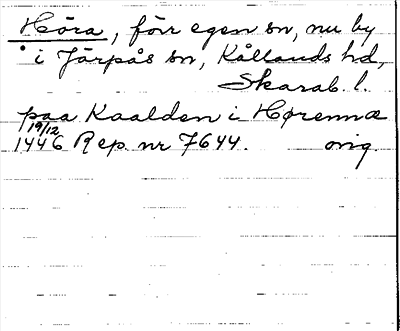 Höra, förr egen sn, nu by
i Järpås sn, Kållands hd,
Skarab. l.
paa Kaalden i Hørennæ
19/12
1446 Rep. nr 7644. orig.